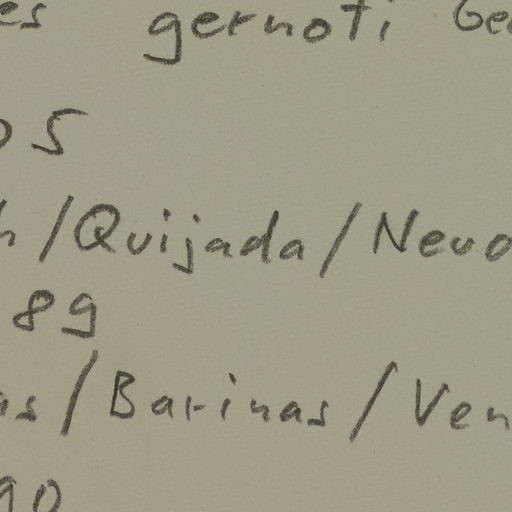 es gernoti Be
05
h/Quijada/Nevo
89
as/Barinas/Ven
90